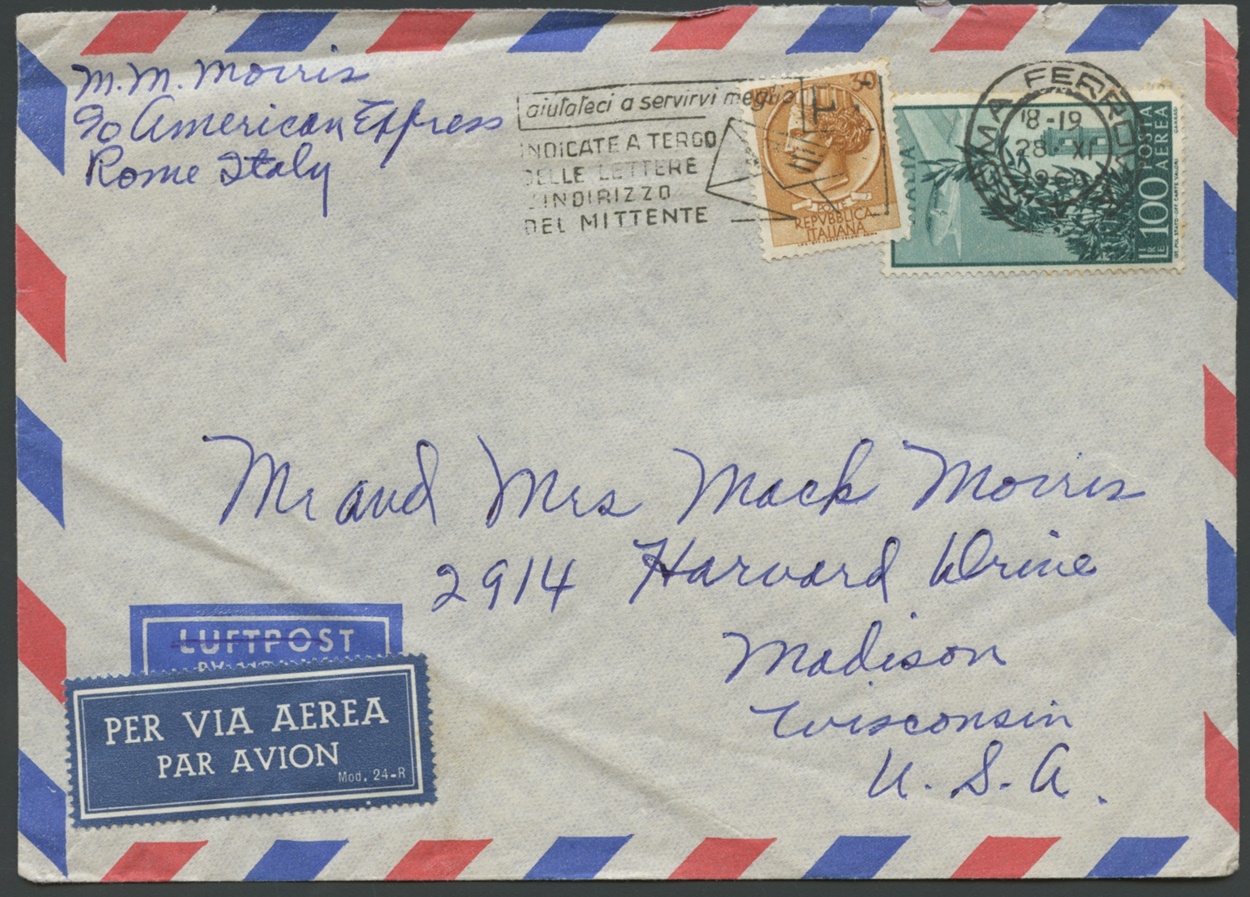 M. M. Morris
c/o American Express
Rome Italy
aiutateci a servirvi meglio
INDICATE A TERGO
DELLE LETTERE
L'INDIRIZZO
DEL MITTENTE
30
POSTE
REPVBBLICA
ITALIANA
ROMA FERROVIA
18-19
28 XI
ITALIA
POSTA
AEREA
LIRE 100
Mr and Mrs Mack Morris
2914 Harvard Drive
Madison
Wisconsin
U. S. A.
LUFTPOST
PER VIA AEREA
PAR AVION
Mod. 24-R